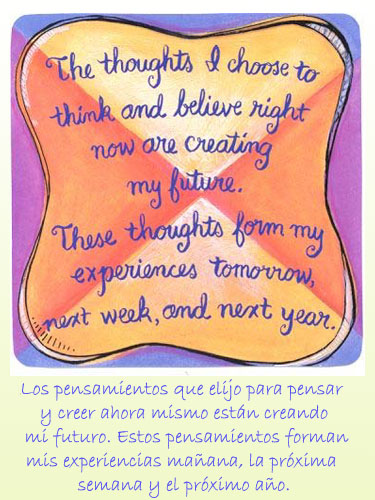 The thoughts I choose to
think and believe right
now are creating
my future.
These thoughts form my
experiences tomorrow,
next week, and next year.
Los pensamientos que elijo para pensar
y creer ahora mismo están creando
mi futuro. Estos pensamientos forman
mis experiencias mañana, la próxima
semana y el próximo año.